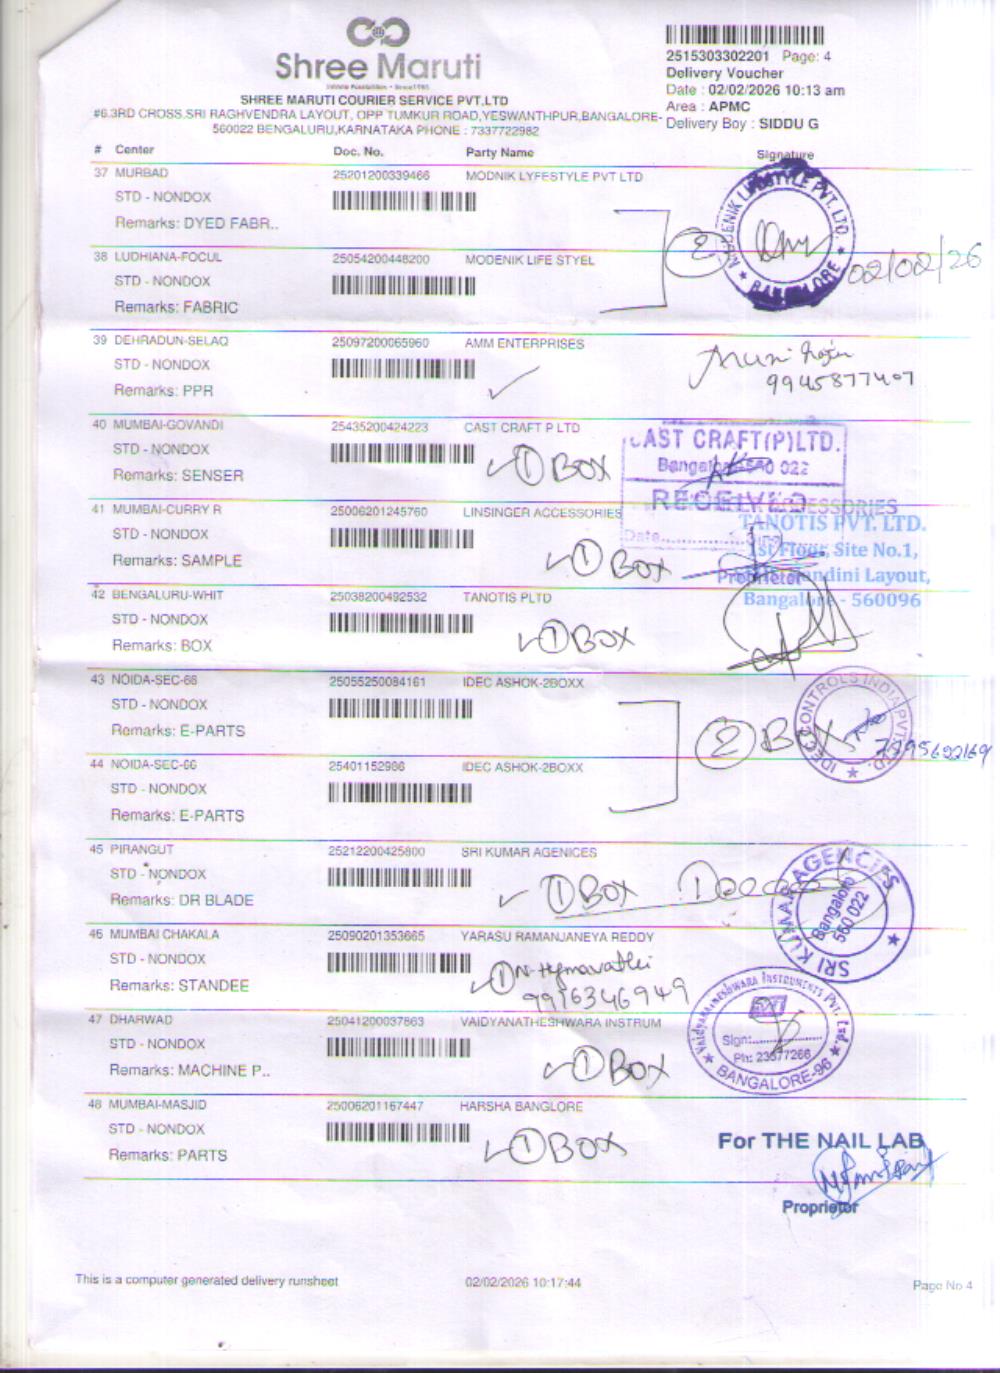 Shree Maruti
SHREE MARUTI COURIER SERVICE PVT.LTD
#6.3RD CROSS.SRI RAGHVENDRA LAYOUT, OPP TUMKUR ROAD,YESWANTHPUR,BANGALORE-
560022 BENGALURU,KARNATAKA PHONE : 7337722982
2515303302201 Page: 4
Delivery Voucher
Date : 02/02/2026 10:13 am
Area : APMC
Delivery Boy : SIDDU G
# Center Doc. No. Party Name Signature
37 MURBAD 25201200339466 MODNIK LYFESTYLE PVT LTD
STD - NONDOX
Remarks: DYED FABR..
2
MODENIK LIFESTYLE PVT. LTD.
BANGALORE
02/02/26
38 LUDHIANA-FOCUL 25054200448200 MODENIK LIFE STYEL
STD - NONDOX
Remarks: FABRIC
39 DEHRADUN-SELAQ 25097200065960 AMM ENTERPRISES
STD - NONDOX
Remarks: PPR
9945877407
40 MUMBAI-GOVANDI 25435200424223 CAST CRAFT P LTD
STD - NONDOX
Remarks: SENSER
1 BOX
CAST CRAFT(P)LTD.
Bangalore-560 022
RECEIVED
Date
41 MUMBAI-CURRY R 25006201245760 LINSINGER ACCESSORIES
STD - NONDOX
Remarks: SAMPLE
1 BOX
ACCESSORIES
Proprietor
TANOTIS PVT. LTD.
1st Floor, Site No.1,
Nandini Layout,
Bangalore - 560096
42 BENGALURU-WHIT 25038200492532 TANOTIS PLTD
STD - NONDOX
Remarks: BOX
1 BOX
43 NOIDA-SEC-66 25055250084161 IDEC ASHOK-2BOXX
STD - NONDOX
Remarks: E-PARTS
2 BOX
IDEC CONTROLS INDIA PVT. LTD.
44 NOIDA-SEC-66 25401152986 IDEC ASHOK-2BOXX
STD - NONDOX
Remarks: E-PARTS
45 PIRANGUT 25212200425800 SRI KUMAR AGENICES
STD - NONDOX
Remarks: DR BLADE
1 BOX
SRI KUMAAR AGENCIES
Bangalore
560 022
46 MUMBAI CHAKALA 25090201353665 YARASU RAMANJANEYA REDDY
STD - NONDOX
Remarks: STANDEE
1 N. Hymavathi
9916346949
47 DHARWAD 25041200037863 VAIDYANATHESHWARA INSTRUM
STD - NONDOX
Remarks: MACHINE P..
1 BOX
Vaidyanatheshwara Instruments Pvt. Ltd.
Sign:
Ph: 23377266
BANGALORE-96
48 MUMBAI-MASJID 25006201167447 HARSHA BANGLORE
STD - NONDOX
Remarks: PARTS
1 BOX
For THE NAIL LAB
Proprietor
This is a computer generated delivery runsheet 02/02/2026 10:17:44 Page No 4